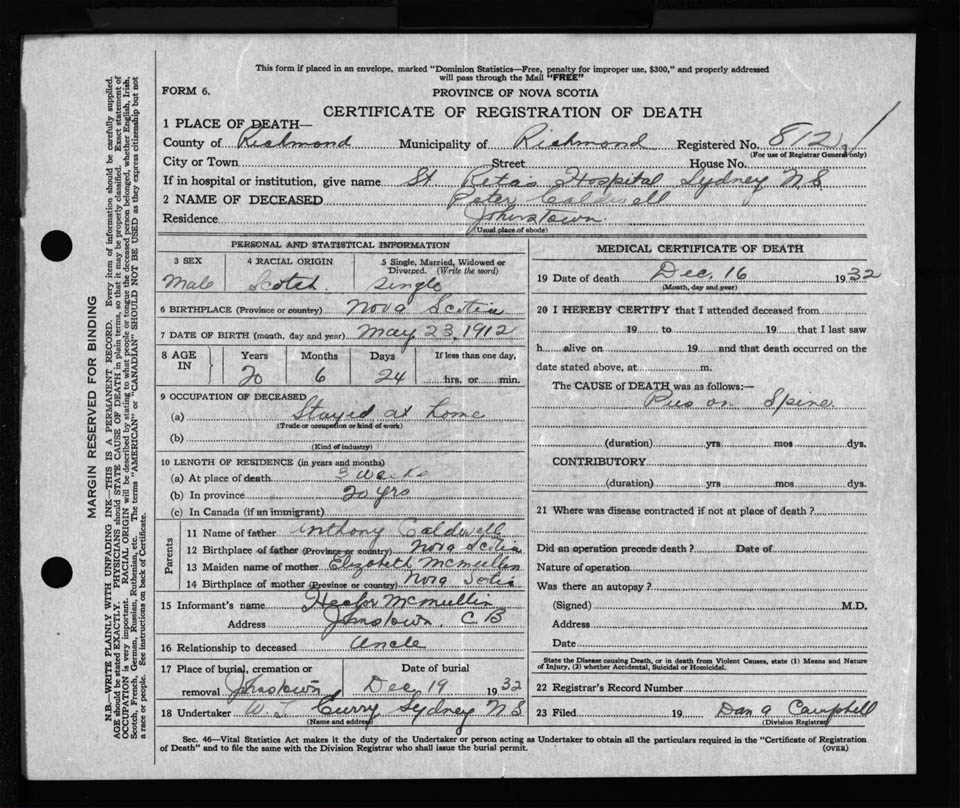 This form if placed in an envelope, marked "Dominion Statistics—Free, penalty for improper use, $300," and properly addressed
will pass through the Mail "FREE"
FORM 6.
PROVINCE OF NOVA SCOTIA
CERTIFICATE OF REGISTRATION OF DEATH
1 PLACE OF DEATH—
County of Richmond Municipality of Richmond Registered No. 812
(For use of Registrar General only)
City or Town Street House No.
If in hospital or institution, give name St Rita's Hospital Sydney N S
2 NAME OF DECEASED Peter Caldwell
Residence Johnstown
(Usual place of abode)
PERSONAL AND STATISTICAL INFORMATION
3 SEX 4 RACIAL ORIGIN 5 Single, Married, Widowed or
Divorced. (Write the word)
Male Scotch Single
6 BIRTHPLACE (Province or country) Nova Scotia
7 DATE OF BIRTH (month, day and year) May 23, 1912
8 AGE IN Years Months Days If less than one day,
20 6 24 hrs. or min.
9 OCCUPATION OF DECEASED
(a) Stayed at home
(Trade or occupation or kind of work)
(b)
(Kind of industry)
10 LENGTH OF RESIDENCE (in years and months)
(a) At place of death 3 weeks
(b) In province 20 yrs
(c) In Canada (if an immigrant)
Parents
11 Name of father Anthony Caldwell
12 Birthplace of father (Province or country) Nova Scotia
13 Maiden name of mother Elizabeth McMullin
14 Birthplace of mother (Province or country) Nova Sotia
15 Informant's name Hector McMullin
Address Johnstown. C B
16 Relationship to deceased Uncle
17 Place of burial, cremation or Date of burial
removal Johnstown Dec 19 1932
18 Undertaker W. J. Curry Sydney N.S.
(Name and address)
MEDICAL CERTIFICATE OF DEATH
19 Date of death Dec. 16 1932
(Month, day and year)
20 I HEREBY CERTIFY that I attended deceased from
19 to 19 that I last saw
h alive on 19 and that death occurred on the
date stated above, at m.
The CAUSE of DEATH was as follows:—
Pus on Spine
(duration) yrs mos dys.
CONTRIBUTORY
(duration) yrs mos dys.
21 Where was disease contracted if not at place of death?
Did an operation precede death? Date of
Nature of operation
Was there an autopsy?
(Signed) M.D.
Address
Date
State the Disease causing Death, or in death from Violent Causes, state (1) Means and Nature
of Injury, (2) whether Accidental, Suicidal or Homicidal.
22 Registrar's Record Number
23 Filed 19 Dan A Campbell
(Division Registrar)
Sec. 46—Vital Statistics Act makes it the duty of the Undertaker or person acting as Undertaker to obtain all the particulars required in the "Certificate of Registration
of Death" and to file the same with the Division Registrar who shall issue the burial permit. (OVER)
MARGIN RESERVED FOR BINDING
N.B.—WRITE PLAINLY WITH UNFADING INK—THIS IS A PERMANENT RECORD. Every item of information should be carefully supplied.
AGE should be stated EXACTLY. PHYSICIANS should STATE CAUSE OF DEATH in plain terms, so that it may be properly classified. Exact statement of
OCCUPATION is very important. RACIAL ORIGIN will be described by stating to what people or tongue the deceased person belonged, whether English, Irish,
Scotch, French, German, Russian, Ruthenian, etc. The terms "AMERICAN" or "CANADIAN" SHOULD NOT BE USED as they express citizenship but not
a race or people. See instructions on back of Certificate.